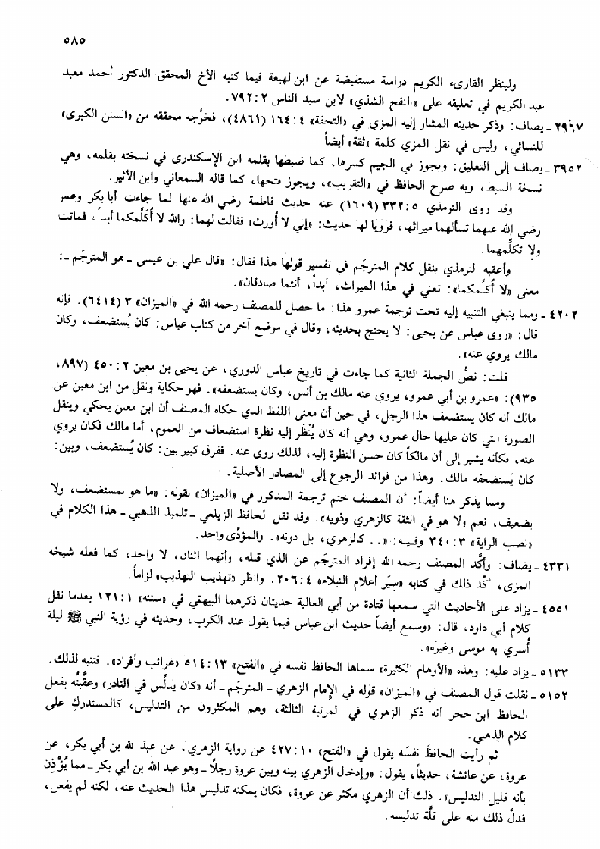 ٥٨٥
ولينظر القارىء الكريم دراسة مستفيضة عن ابن لهيعة فيما كتبه الأخ المحقق الدكتور أحمد معبد
عبد الكريم في تعليقه على «النفح الشذي» لابن سيد الناس ٢: ٧٩٢.
٣٩٦٧ ـ يضاف: وذكر حديثه المشار إليه المزي في «التحفة» ٤: ١٦٤ (٤٨٦١)، فخرَّجه محققه من «السنن الكبرى»
للنسائي، وليس في نقل المزي كلمة «ثقة» أيضاً
٣٩٥٢ ـ يضاف إلى التعليق: ويجوز في الجيم كسرها. كما ضبطها بقلمه ابن الإسكندري في نسخته بقلمه، وهي
نسخة السبط، وبه صرح الحافظ في «التقريب»، ويجوز فتحها، كما قاله السمعاني وابن الأثير.
وقد روى الترمذي ٥: ٣٣٢ (١٦٠٩) عنه حديث فاطمة رضي الله عنها لما جاءت أبا بكر وعمر
رضي الله عنهما تسألهما ميراثها، فرويا لها حديث: «إني لا أورث» فقالت لهما: والله لا أكلمكما أبداً، فماتت
ولا تكلِّمهما.
وأعقبه الترمذي بنقل كلام المترجَم في تفسير قولها هذا فقال: «قال علي بن عيسى ـ هو المترجَم ـ:
معنى «لا أكلمكما»: تعني في هذا الميراث، أبداً، أنتما صادقان».
٤٢٠٢ ـ ومما ينبغي التنبيه إليه تحت ترجمة عمرو هذا: ما حصل للمصنف رحمه الله في «الميزان» ٣ (٦٤١٤). فإنه
قال: «روى عباس عن يحيى: لا يحتج بحديثه، وقال في موضع آخر من كتاب عباس: كان يُستضعف، وكان
مالك يروي عنه».
قلت: نصُّ الجملة الثانية كما جاءت في تاريخ عباس الدوري، عن يحيى بن معين ٢: ٤٥٠ (٨٩٧،
٩٣٥): «عمرو بن أبي عمرو، يروي عنه مالك بن أنس، وكان يستضعفه». فهو حكاية ونقل من ابن معين عن
مالك أنه كان يستضعف هذا الرجل، في حين أن معنى اللفظ الذي حكاه المصنف أن ابن معين يحكي وينقل
الصورة التي كان عليها حال عمرو، وهي أنه كان يُنظر إليه نظرة استضعاف من العموم، أما مالك فكان يروي
عنه، فكأنه يشير إلى أن مالكاً كان حسن النظرة إليه، لذلك روى عنه. ففرق كبير بين: كان يُستضعف، وبين:
كان يَستضعفه مالك. وهذا من فوائد الرجوع إلى المصادر الأصلية.
ومما يذكر هنا أيضاً: أن المصنف ختم ترجمة المذكور في «الميزان» بقوله: «ما هو بمستضعف، ولا
بضعيف، نعم «ولا هو في الثقة كالزهري وذويه». وقد نقل الحافظ الزيلعي ـ تلميذ الذهبي ـ هذا الكلام في
«نصب الراية» ٣: ٢٤٠ وفيه: «.. كالزهري، بل دونه». والمؤدَّى واحد.
٤٣٣١ ـ يضاف: وأكَّد المصنف رحمه الله إفراد المترجَم عن الذي قبله، وأنهما اثنان، لا واحد، كما فعله شيخه
المزي، أكَّد ذلك في كتابه «سِيَر أعلام النبلاء» ٤: ٢٠٦. وانظر «تهذيب التهذيب» لزاماً.
٤٥٥١ ـ يزاد على الأحاديث التي سمعها قتادة من أبي العالية حديثان ذكرهما البيهقي في «سننه» ١: ١٢١ بعدما نقل
كلام أبي داود، قال: «وسمع أيضاً حديث ابن عباس فيما يقول عند الكرب، وحديثه في رؤية النبي ﷺ ليلة
أسري به موسى وغيره».
٥١٣٣ ـ يزاد عليه: وهذه «الأوهام الكثيرة» سماها الحافظ نفسه في «الفتح» ١٣: ٥١٤ «غرائب وأفراد». فتنبه لذلك.
٥١٥٢ ـ نقلت قول المصنف في «الميزان» قوله في الإمام الزهري ـ المترجَم ـ أنه «كان يدلِّس في النادر» وعقَّبته بفعل
الحافظ ابن حجر أنه ذكر الزهري في المرتبة الثالثة، وهم المكثرون من التدليس، كالمستدرك على
كلام الذهبي.
ثم رأيت الحافظ نفسَه يقول في «الفتح» ١٠: ٤٢٧ عن رواية الزهري: عن عبد الله بن أبي بكر، عن
عروة، عن عائشة، حديثاً، يقول: «وإدخال الزهري بينه وبين عروة رجلاً ـ وهو عبد الله بن أبي بكر ـ مما يُؤْذِن
بأنه قليل التدليس». ذلك أن الزهري مكثر عن عروة، فكان يمكنه تدليس هذا الحديث عنه، لكنه لم يفعل،
فدلَّ ذلك منه على قلَّة تدليسه.